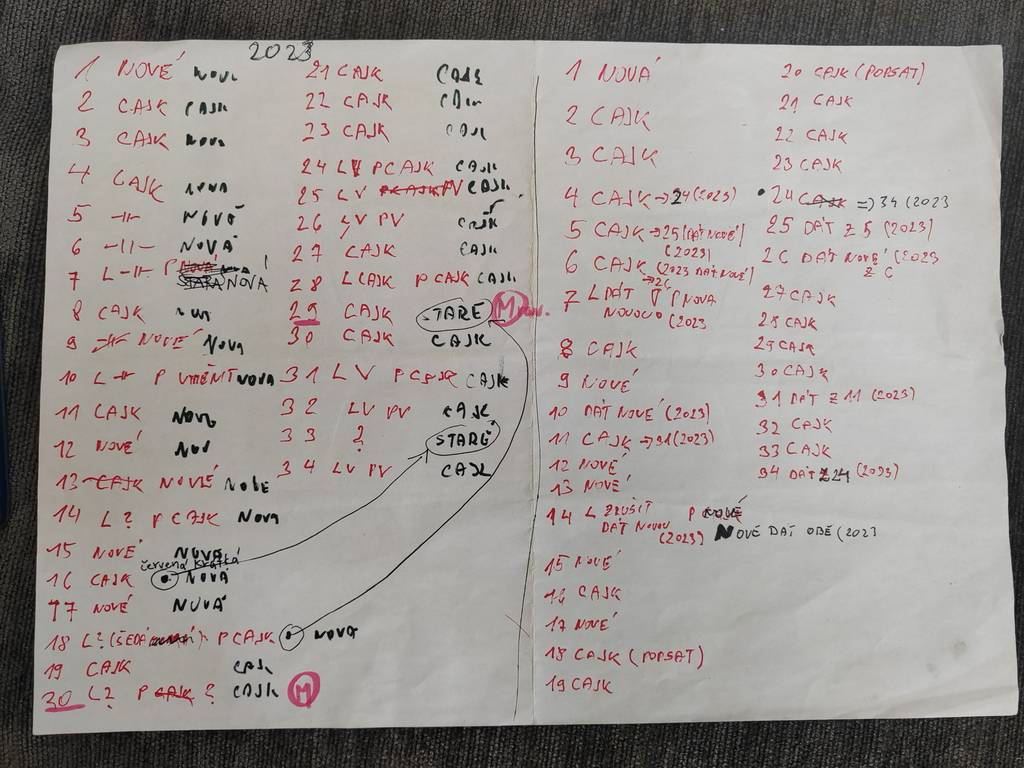 2023
1 NOVÉ
2 CAJK CAJK
3 CAJK NOVA
4 CAJK NOVA
5 -||- NOVÁ
6 -||- NOVÁ
7 L -||- P NOVÉ STARÁ NOVA
8 CAJK
9 NOVÉ NOVÁ
10 L -||- P VYMĚNIT NOVA
11 CAJK NOVÁ
12 NOVÉ
13 CAJK NOVÉ
14 L ? P CAJK NOVA
15 NOVÉ NOVÉ
červená krátká
16 CAJK NOVÁ
17 NOVÉ NOVÁ
18 L? (ŠEDÁ) P CAJK NOVÁ
19 CAJK CAJK
30 L? P CAJK ? CAJK M
21 CAJK CAJK
22 CAJK
23 CAJK CAJK
24 LV P CAJK CAJK
25 LV PCAJK PV CAJK
26 LV PV CAJK
27 CAJK CAJK
28 L CAJK P CAJK CAJK
29 CAJK STARÉ M
30 CAJK CAJK
31 LV P CAJK CAJK
32 LV PV CAJK
33 ? STARÉ
34 LV PV CAJK
1 NOVÁ
2 CAJK
3 CAJK
4 CAJK → 24 (2023)
5 CAJK → 25 (DÁT NOVÉ)
(2023)
6 CAJK (2023 DÁT NOVÉ)
→ 26
7 L DÁT P NOVA
NOVOU (2023
8 CAJK
9 NOVÉ
10 DÁT NOVÉ (2023)
11 CAJK → 31 (2023)
12 NOVÉ
13 NOVÉ
14 L ZRUŠIT P NOVÉ
DÁT NOVOU
(2023) NOVÉ DÁT OBĚ (2023
15 NOVÉ
16 CAJK
17 NOVÉ
18 CAJK (POPSAT)
19 CAJK
20 CAJK (POPSAT)
21 CAJK
22 CAJK
23 CAJK
24 CAJK => 34 (2023
25 DÁT Z 5 (2023)
26 DÁT NOVÉ (2023
Z 6
27 CAJK
28 CAJK
29 CAJK
30 CAJK
31 DÁT Z 11 (2023)
32 CAJK
33 CAJK
34 DÁT Z 24 (2023)